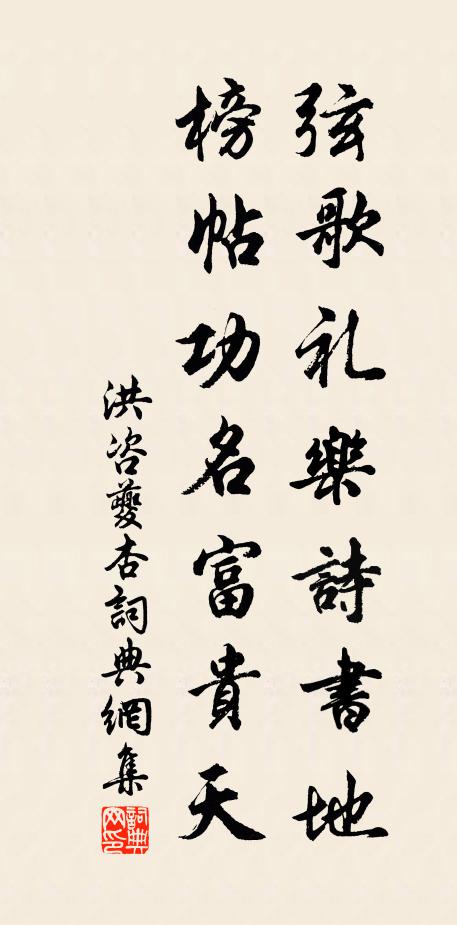 弦歌礼樂詩書地
榜帖功名富貴天
洪咨夔杏詞典網集
詞典网印